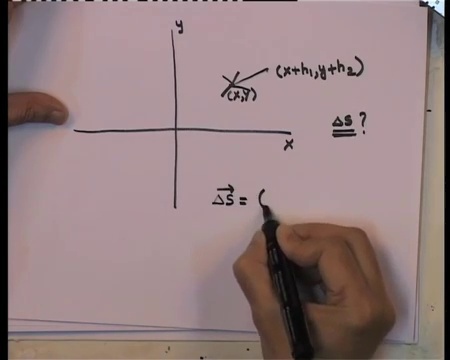 y
(x+h₁, y+h₂)
(x,y)
Δs ?
x
Δs⃗ = (